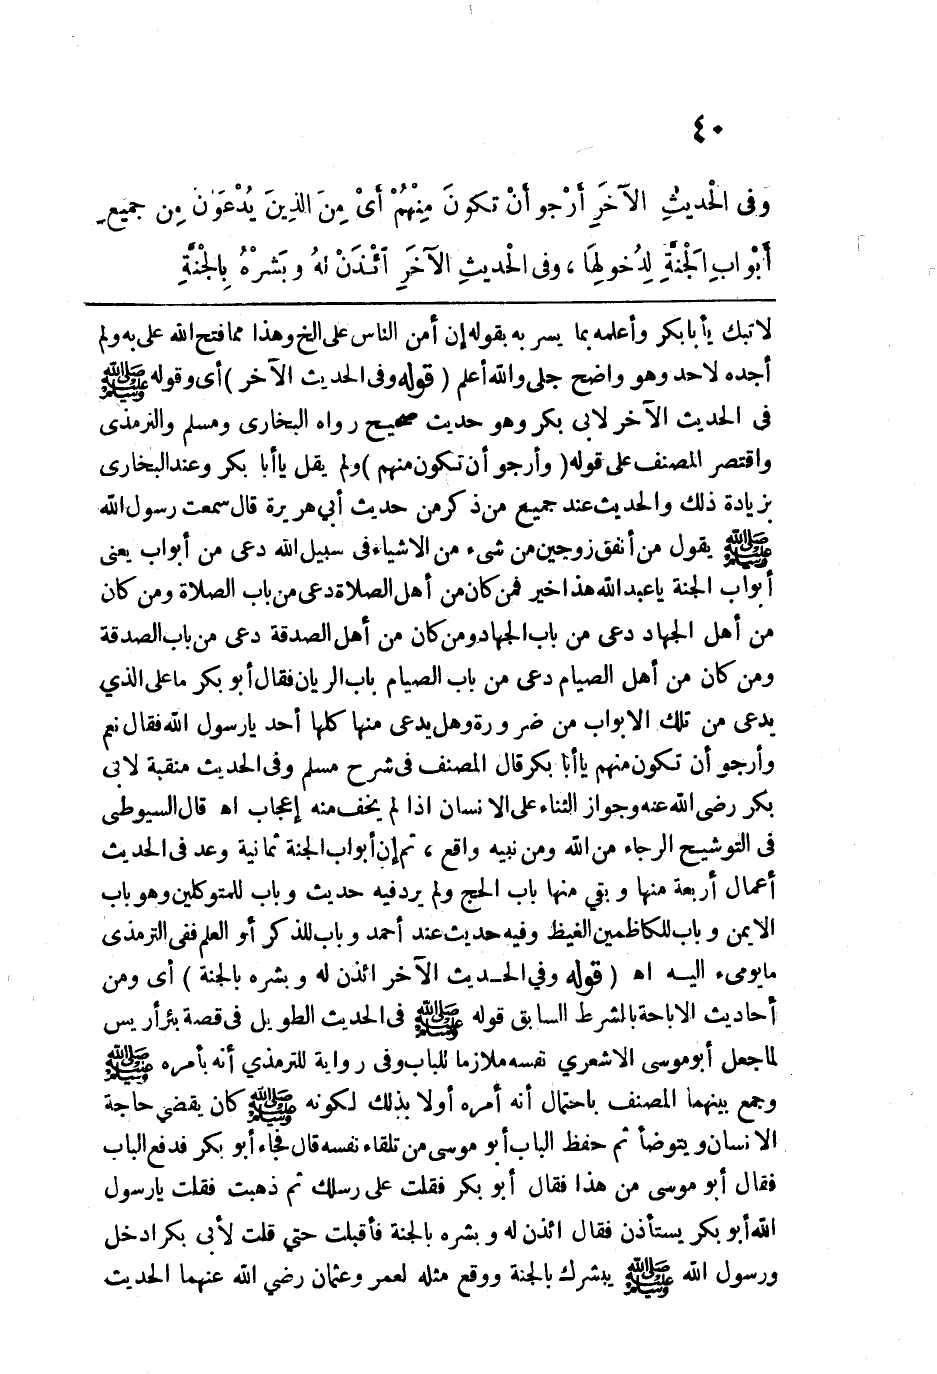 ٤٠
وَفى الْحديثِ الآخَرِ أَرْجو أَنْ تكونَ مِنْهُمْ أىْ مِنَ الذِينَ يُدْعَوْنَ مِن جميع
أَبْوابِ الْجَنَّةِ لِدُخولِهَا ، وَفى الحديثِ الآخَرِ ائْذَنْ لهُ وبَشرْهُ بِالجْنَّةِ
لاتبك يأبابكر وأعلمه بما يسر به بقوله إن أمن الناس على الخ وهذا مما فتح الله على به ولم
أجده لاحد وهو واضح جلى والله أعلم ( قوله وفى الحديث الآخر ) أى وقوله ﷺ
فى الحديث الآخر لابى بكر وهو حديث صحيح رواه البخارى ومسلم والترمذى
واقتصر المصنف على قوله ( وأرجو أن تكون منهم ) ولم يقل ياأبا بكر وعند البخارى
بزيادة ذلك والحديث عند جميع من ذكر من حديث أبي هريرة قال سمعت رسول الله
ﷺ يقول من أنفق زوجين من شىء من الاشياء فى سبيل الله دعى من أبواب يعنى
أبواب الجنة ياعبد الله هذا خير فمن كان من أهل الصلاة دعى من باب الصلاة ومن كان
من أهل الجهاد دعى من باب الجهاد ومن كان من أهل الصدقة دعى من باب الصدقة
ومن كان من أهل الصيام دعى من باب الصيام باب الريان فقال أبو بكر ما على الذي
يدعى من تلك الابواب من ضرورة وهل يدعى منها كلها أحد يارسول الله فقال نعم
وأرجو أن تكون منهم ياأبا بكر قال المصنف فى شرح مسلم وفى الحديث منقبة لابى
بكر رضى الله عنه وجواز الثناء على الانسان اذا لم يخف منه إعجاب اه قال السيوطى
فى التوشيح الرجاء من الله ومن نبيه واقع ، ثم إن أبواب الجنة ثمانية وعد فى الحديث
أعمال أربعة منها وبقي منها باب الحج ولم يرد فيه حديث وباب للمتوكلين وهو باب
الايمن وباب للكاظمين الغيظ وفيه حديث عند أحمد وباب للذكر أو العلم ففى الترمذى
مايومىء اليه اه ( قوله وفي الحديث الآخر ائذن له وبشره بالجنة ) أى ومن
أحاديث الاباحة بالشرط السابق قوله ﷺ فى الحديث الطويل فى قصة بئرأريس
لما جعل أبوموسى الاشعري نفسه ملازما للباب وفى رواية للترمذي أنه بأمره ﷺ
وجمع بينهما المصنف باحتمال أنه أمره أولا بذلك لكونه ﷺ كان يقضي حاجة
الانسان ويتوضأ ثم حفظ الباب أبو موسى من تلقاء نفسه قال فجاء أبو بكر فدفع الباب
فقال أبو موسى من هذا فقال أبو بكر فقلت على رسلك ثم ذهبت فقلت يارسول
الله أبو بكر يستأذن فقال ائذن له وبشره بالجنة فأقبلت حتي قلت لأبى بكر ادخل
ورسول الله ﷺ يبشرك بالجنة ووقع مثله لعمر وعثمان رضي الله عنهما الحديث